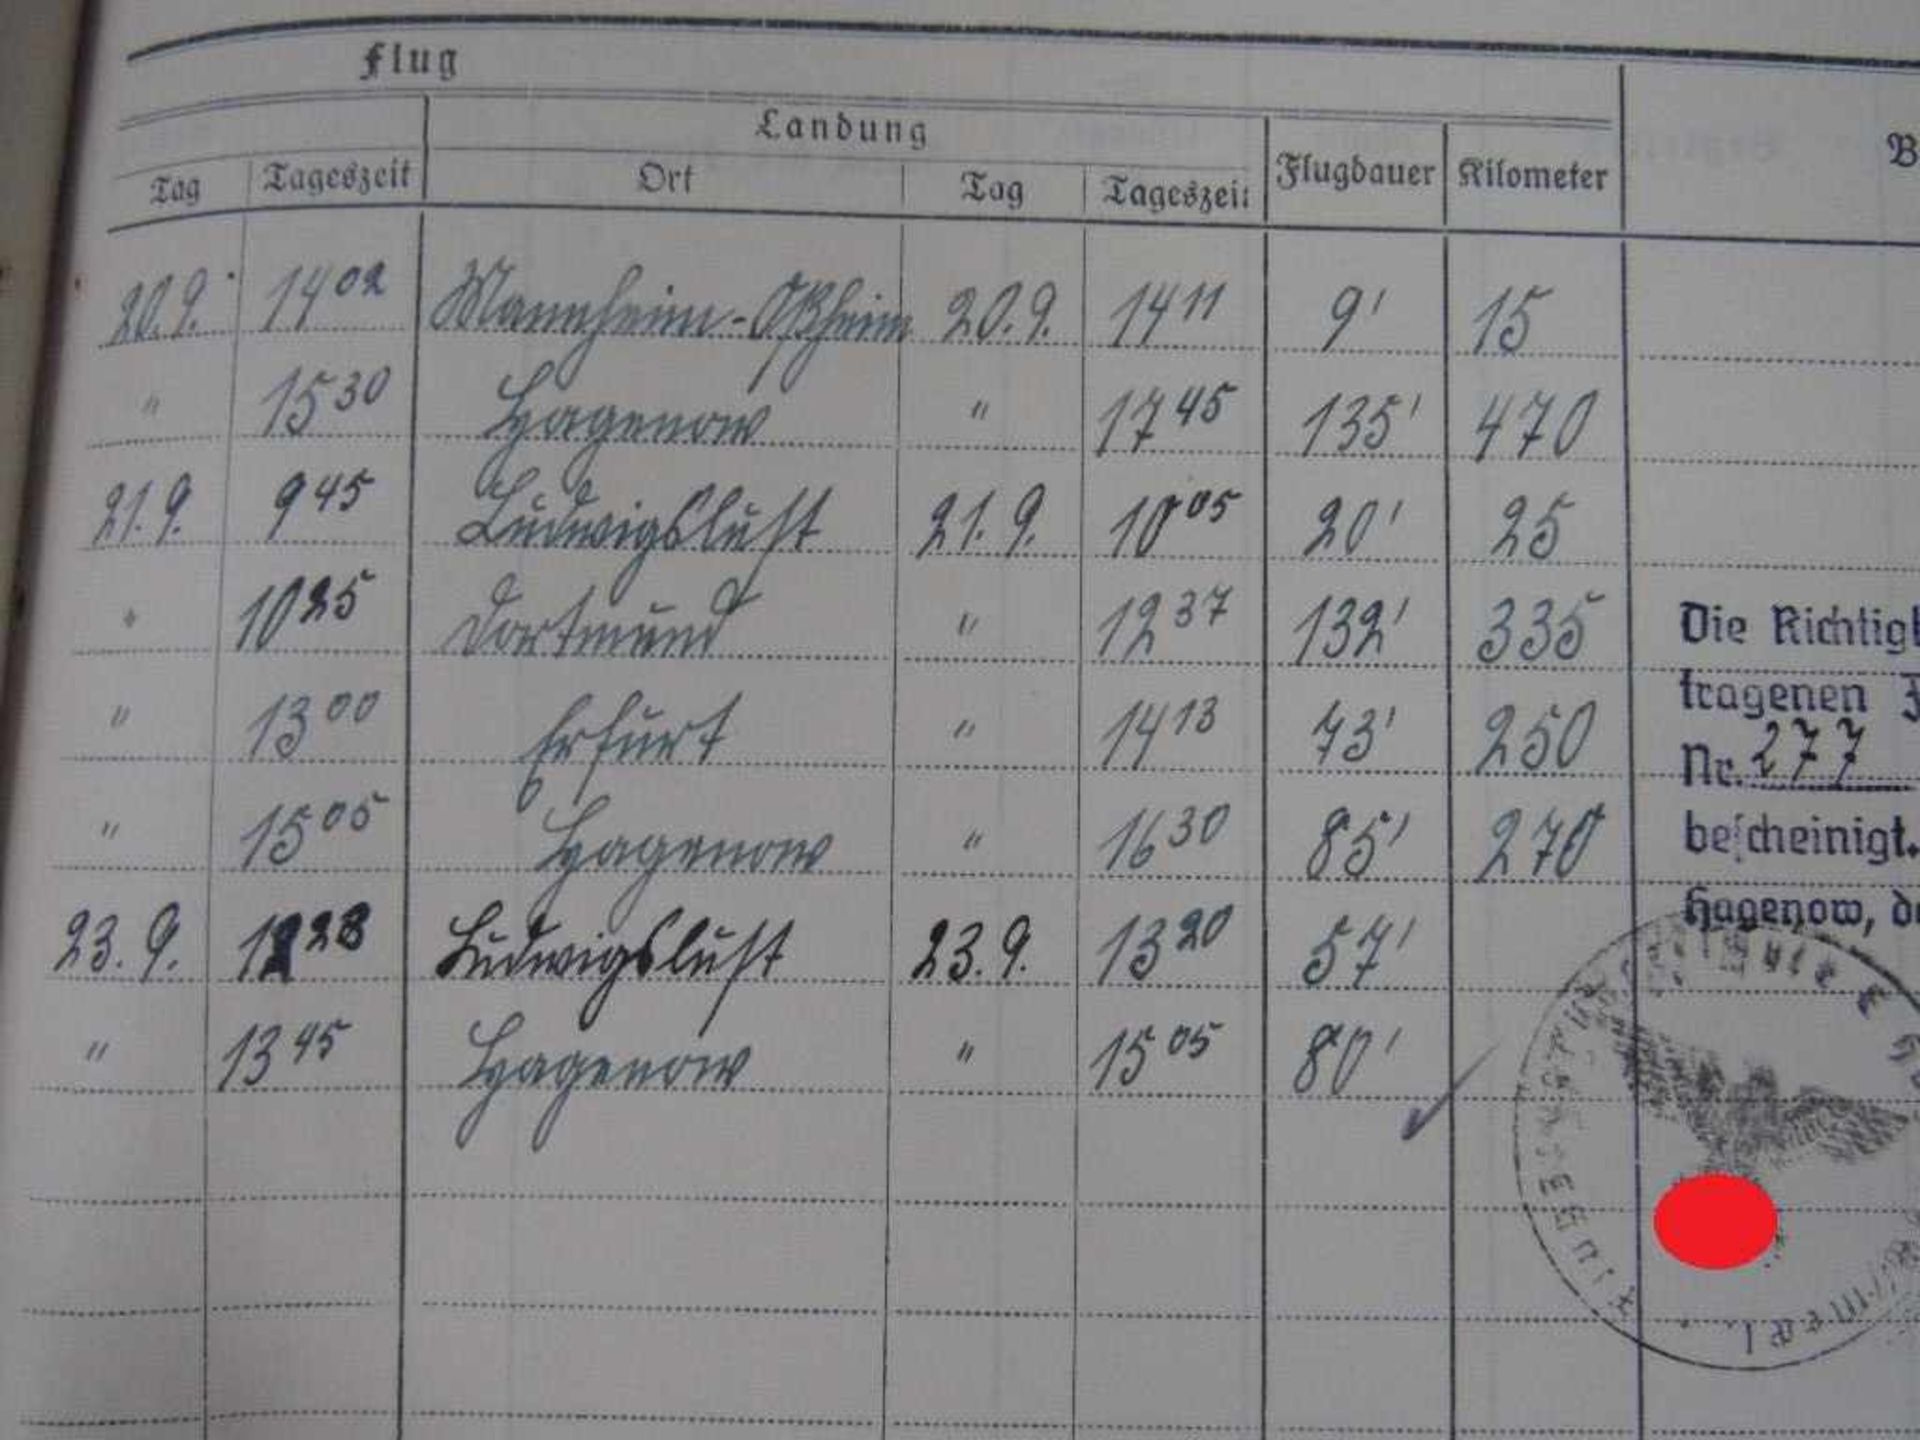 Flug
Landung
Tag Tageszeit Ort Tag Tageszeit Flugdauer Kilometer B
20.9. 14 02 Mannheim- 20.9. 14 11 9' 15
" 15 30 Hagenow " 17 45 135' 470
21.9. 9 45 Ludwigslust 21.9. 10 05 20' 25
" 10 25 Dortmund " 12 37 132' 335
Die Richtigk
" 13 00 Erfurt " 14 13 73' 250
tragenen F
Nr. 277
" 15 05 Hagenow " 16 30 85' 270
bescheinigt.
Hagenow, de
23.9. 12 23 Ludwigslust 23.9. 13 20 57'
" 13 45 Hagenow " 15 05 80'